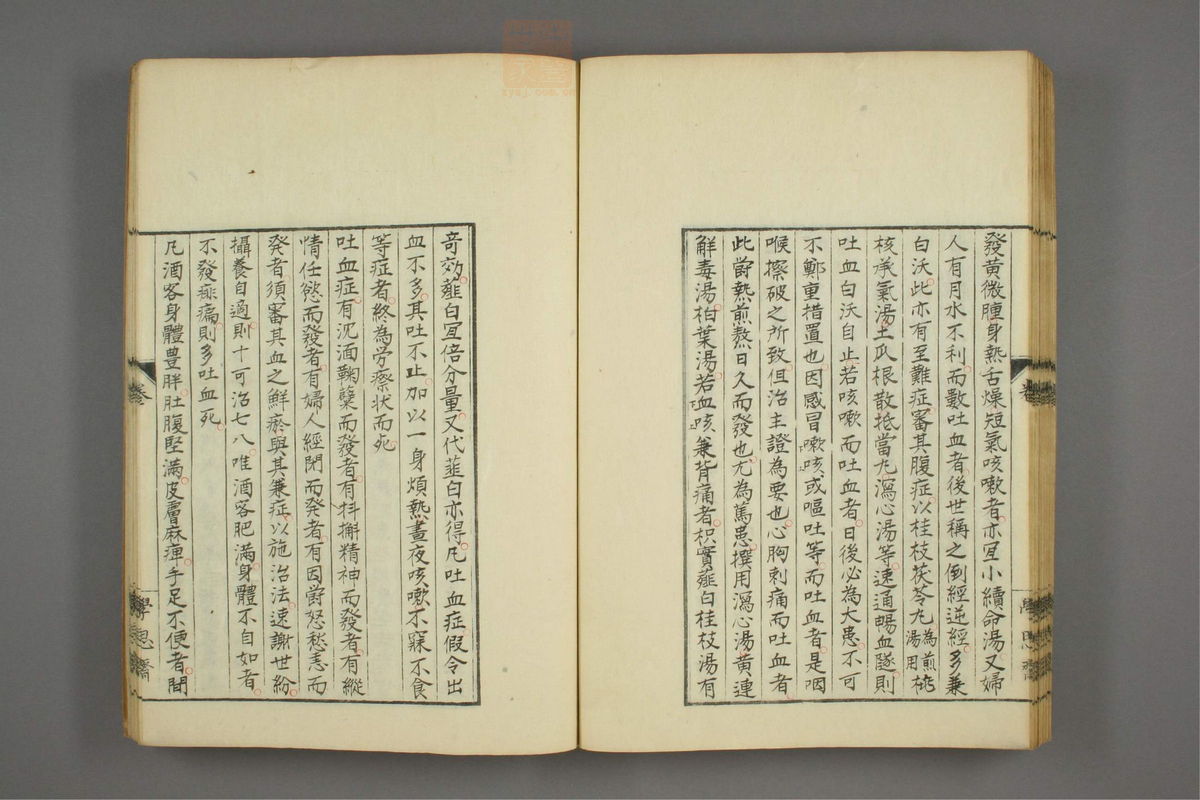 發黃微腫身熱舌燥短氣咳嗽者亦宜小續命湯又婦
人有月水不利而數吐血者後世稱之倒經逆經多兼
白沃此亦有至難症審其腹症以桂枝茯苓丸為煎湯用桃
核承氣湯土瓜根散抵當丸瀉心湯等速通暢血隧則
吐血白沃自止若咳嗽而吐血者日後必為大患不可
不鄭重措置也因感冒嗽咳或嘔吐等而吐血者是咽
喉擦破之所致但治主證為要也心胸刺痛而吐血者
此欝熱煎熬日久而發也尤為篤患撰用瀉心湯黃連
解毒湯柏葉湯若血咳兼背痛者枳實薤白桂枝湯有
奇効薤白宜倍分量又代韮白亦得凡吐血症假令出
血不多其吐不止加以一身煩熱晝夜咳嗽不寐不食
等症者終為勞瘵狀而死
吐血症有沉湎鞠蘖而發者有抖擻精神而發者有縱
情任慾而發者有婦人經閉而発者有因欝怒愁恚而
発者須審其血之鮮瘀與其兼症以施治法速謝世紛
攝養自適則十可治七八唯酒客肥滿身體不自如者
不發痱痛則多吐血死
凡酒客身體豊胖肚腹堅滿皮膚麻痺手足不便者間
卷
學思齋
zysj.com.cn